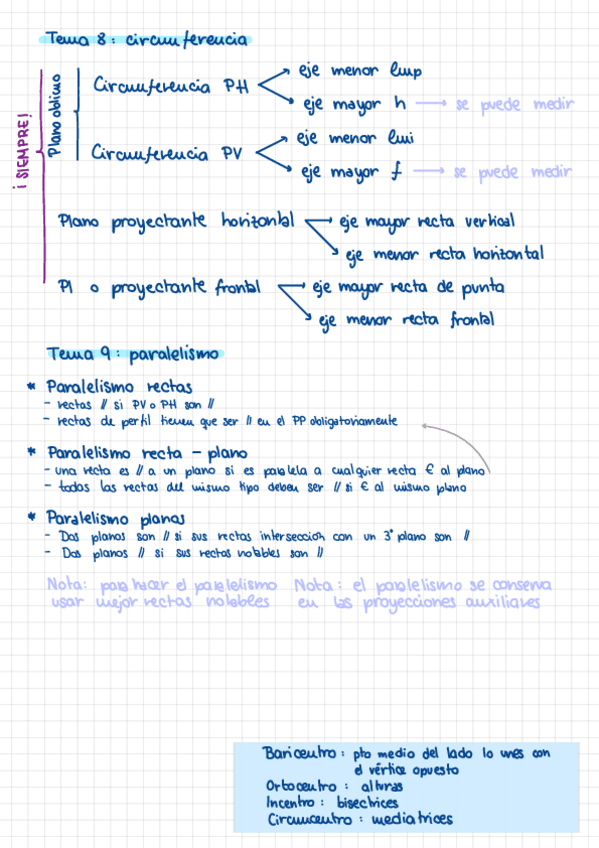 Tema 8: circunferencia
¡SIEMPRE!
Plano oblicuo
Circunferencia PH
eje menor lmp
eje mayor h → se puede medir
Circunferencia PV
eje menor lmi
eje mayor f → se puede medir
Plano proyectante horizontal → eje mayor recta vertical
eje menor recta horizontal
Pl o proyectante frontal → eje mayor recta de punta
eje menor recta frontal
Tema 9: paralelismo
* Paralelismo rectas
- rectas // si PV o PH son //
- rectas de perfil tienen que ser // en el PP obligatoriamente
* Paralelismo recta - plano
- una recta es // a un plano si es paralela a cualquier recta € al plano
- todas las rectas del mismo tipo deben ser // si € al mismo plano
* Paralelismo planos
- Dos planos son // si sus rectas interseccion con un 3° plano son //
- Dos planos // si sus rectas notables son //
Nota: para hacer el paralelismo
usar mejor rectas notables
Nota: el paralelismo se conserva
en las proyecciones auxiliares
Baricentro: pto medio del lado lo unes con
el vértice opuesto
Ortocentro: alturas
Incentro: bisectrices
Circuncentro: mediatrices